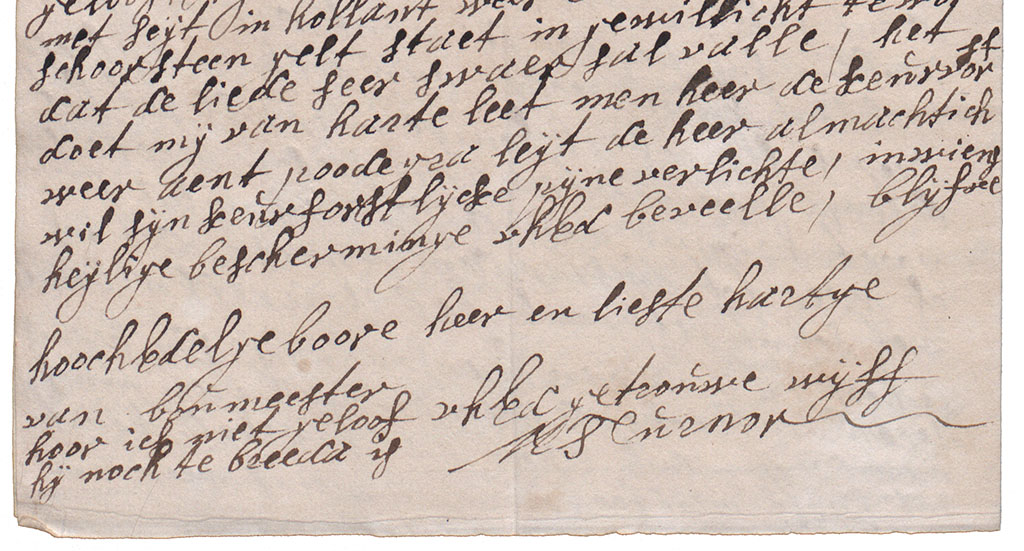 met seyt in hollant weer
schoorsteen gelt staet in gewillicht te
dat de liede seer swaer sal valle, het
doet mij van harte leet men heer de keurvor st
weer aent poodegra leyt de heer almachtich
wil sijn keurforstlycke pijne verlichte, in wiens
heylige bescherminge uhEd beveelle, blijfve
hoochEdelgeboore heer en liefste hartye
van boumeester
hoor ick niet geloof
hij noch te breeda is
uhEd getrouwe wijff
M Turnor